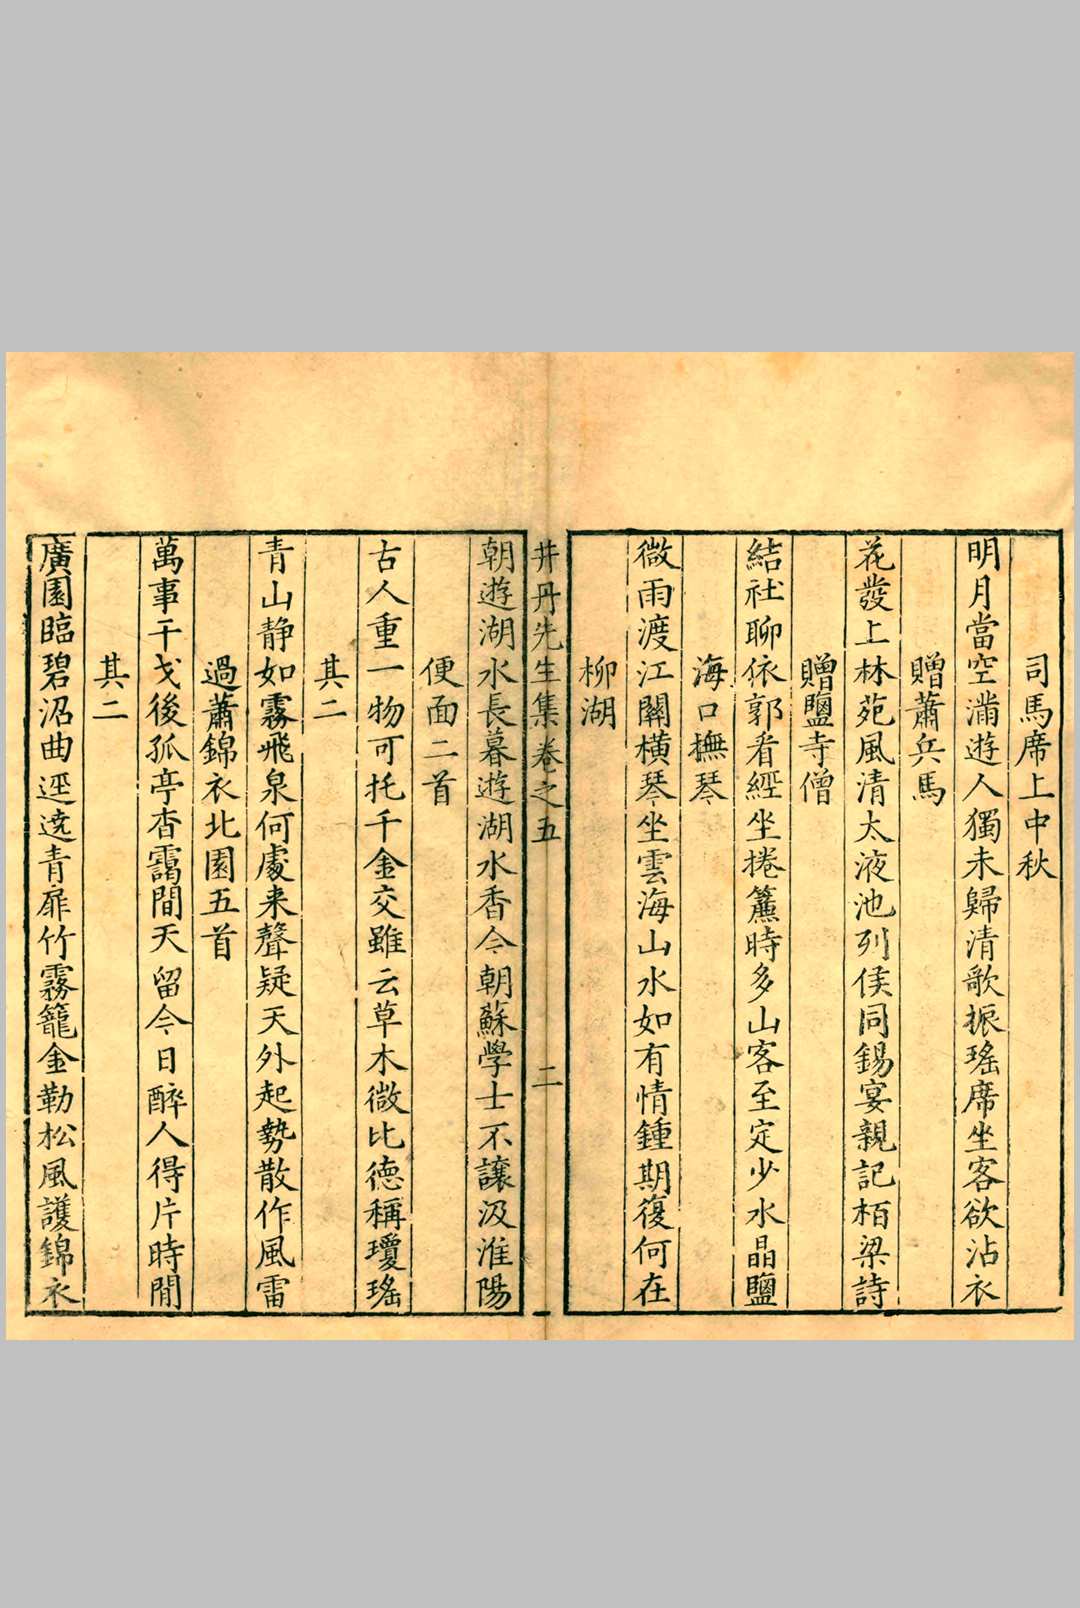 司馬席上中秋
明月當空滿遊人獨未歸清歌振瑤席坐客欲沾衣
贈蕭兵馬
花發上林苑風清太液池列侯同錫宴親記栢梁詩
贈鹽寺僧
結社聊依郭看經坐捲簾時多山客至定少水晶鹽
海口撫琴
微雨渡江關橫琴坐雲海山水如有情鍾期復何在
柳湖
井丹先生集卷之五
二
朝遊湖水長暮遊湖水香今朝蘇學士不讓汲淮陽
便面二首
古人重一物可托千金交雖云草木微比德稱瓊瑤
其二
青山静如霧飛泉何處来聲疑天外起勢散作風雷
過蕭錦衣北園五首
萬事干戈後孤亭杳靄間天留今日醉人得片時閒
其二
廣園臨碧沼曲逕遶青扉竹霧籠金勒松風護錦衣